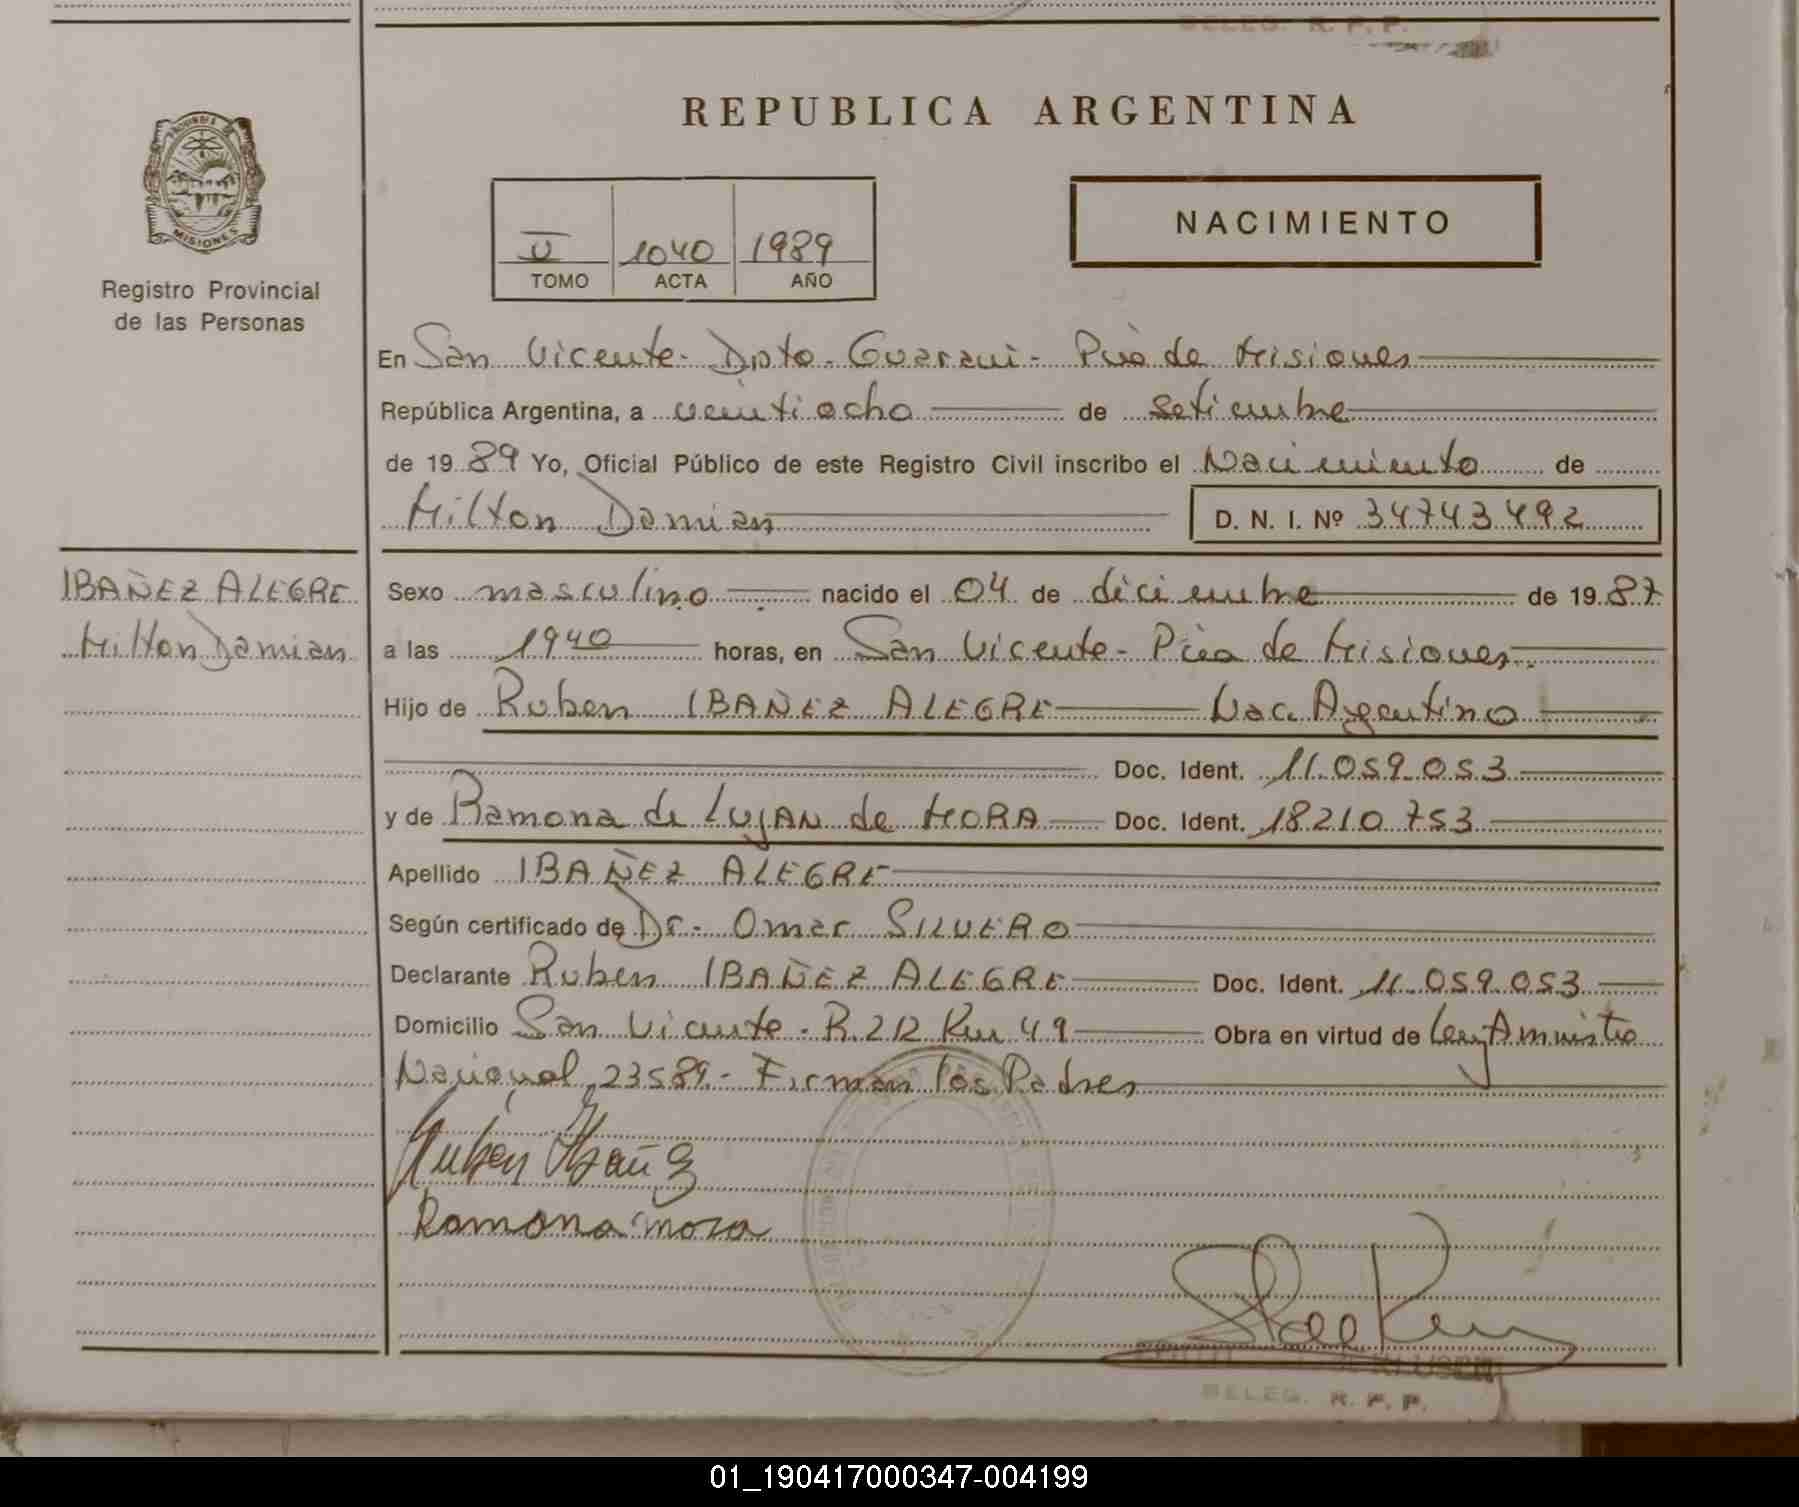 DELEG. R. P. P.
REPUBLICA ARGENTINA
PROVINCIA DE
MISIONES
Registro Provincial
de las Personas
NACIMIENTO
1040 1989
TOMO ACTA AÑO
En San Vicente - Dpto. Guarani - Pcia de Misiones
República Argentina, a veintiocho de setiembre
de 19 89 Yo, Oficial Público de este Registro Civil inscribo el Nacimiento de
Milton Damian D. N. I. Nº 34743492
IBAÑEZ ALEGRE
Milton Damian
Sexo masculino nacido el 04 de diciembre de 19 87
a las 19 40 horas, en San Vicente - Pcia de Misiones
Hijo de Ruben IBAÑEZ ALEGRE Nac. Argentino
Doc. Ident. 11.059.053
y de Ramona de LUJAN de MORA Doc. Ident. 18210753
Apellido IBAÑEZ ALEGRE
Según certificado de Dr. Omar SILVERO
Declarante Ruben IBAÑEZ ALEGRE Doc. Ident. 11.059.053
Domicilio San Vicente - R. 212 Km 49 Obra en virtud de Ley Amnistia
Nacional 23589.- Firman los Padres
Ruben Ibañez
Ramona mora
DELEG. R. P. P.
01_190417000347-004199